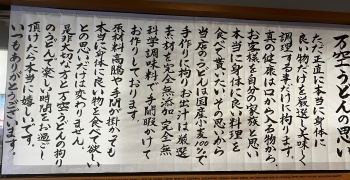 万空うどんの思い
ただ正直に本当に身体に
良い物だけを厳選し美味しく
調理する事だけに拘ります。
真の健康は口から入る物から。
お客様を自分の家族と思い
本当に身体に良い料理を
食べて貰いたいその思いから
当店のうどんは国産小麦100%で
手作りに拘りお出汁は厳選
素材を完全無添加完全無
科学調味料で手間暇かけて
お作りしております。
原材料高騰や手間が掛かっても
本当に身体に良い物を食べて欲しい
との思いだけは変わりません。
是非大切な方と万空うどんの拘り
のうどんで楽しい時間をお過ごし
頂けたら本当に嬉しいです。
いつもありがとうございます。